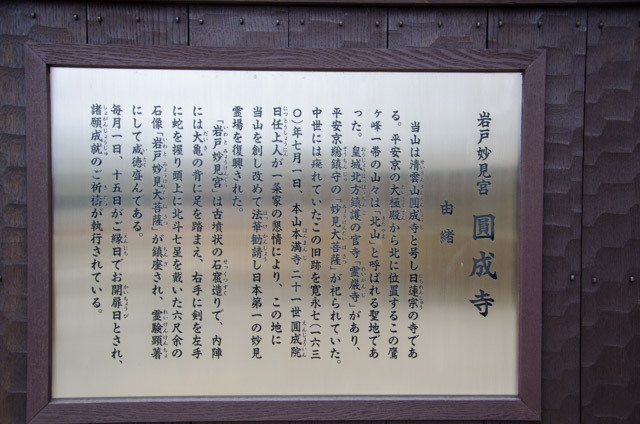 岩戸妙見宮 圓成寺
由緒
当山は清雲山圓成寺と号し日蓮宗の寺であ
る。平安京の大極殿から北に位置するこの鷹
ヶ峰一帯の山々は「北山」と呼ばれる聖地であ
った。皇城北方鎮護の官寺「霊巌寺」があり、
平安京総鎮守の「妙見大菩薩」が祀られていた。
中世には廃れていたこの旧跡を寛永七(一六三
〇)年七月一日、本山本満寺二十一世圓成院
日任上人が一条家の懇情により、この地に
当山を創し改めて法華勧請し日本第一の妙見
霊場を復興された。
「岩戸妙見宮」は古墳状の石窟造りで、内陣
には大亀の背に足を踏まえ、右手に剣を左手
に蛇を握り頭上に北斗七星を戴いた六尺余の
石像「岩戸妙見大菩薩」が鎮座され、霊験顕著
にして威徳盛んてある。
毎月一日、十五日がご縁日でお開扉日とされ、
諸願成就のご祈祷が執行されている。